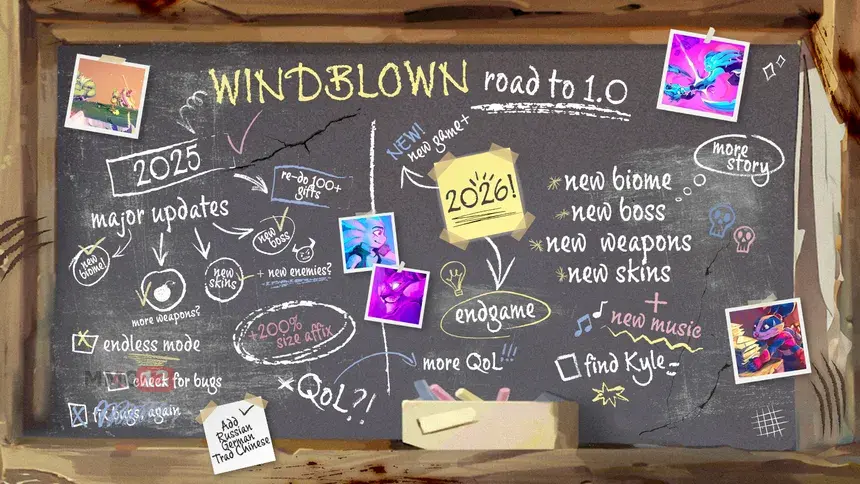 WINDBLOWN road to 1.0
2025
major updates
re-do 100+
gifts
new
biome!
more weapons?
new
skins
new
boss
+ new enemies?
endless mode
check for bugs
fix bugs, again
+200%
size affix
QoL?!
Add
Russian
German
Trad Chinese
NEW!
new game+
2026!
endgame
more QoL!!!
new biome
new boss
new weapons
new skins
+
new music
more
story
find Kyle